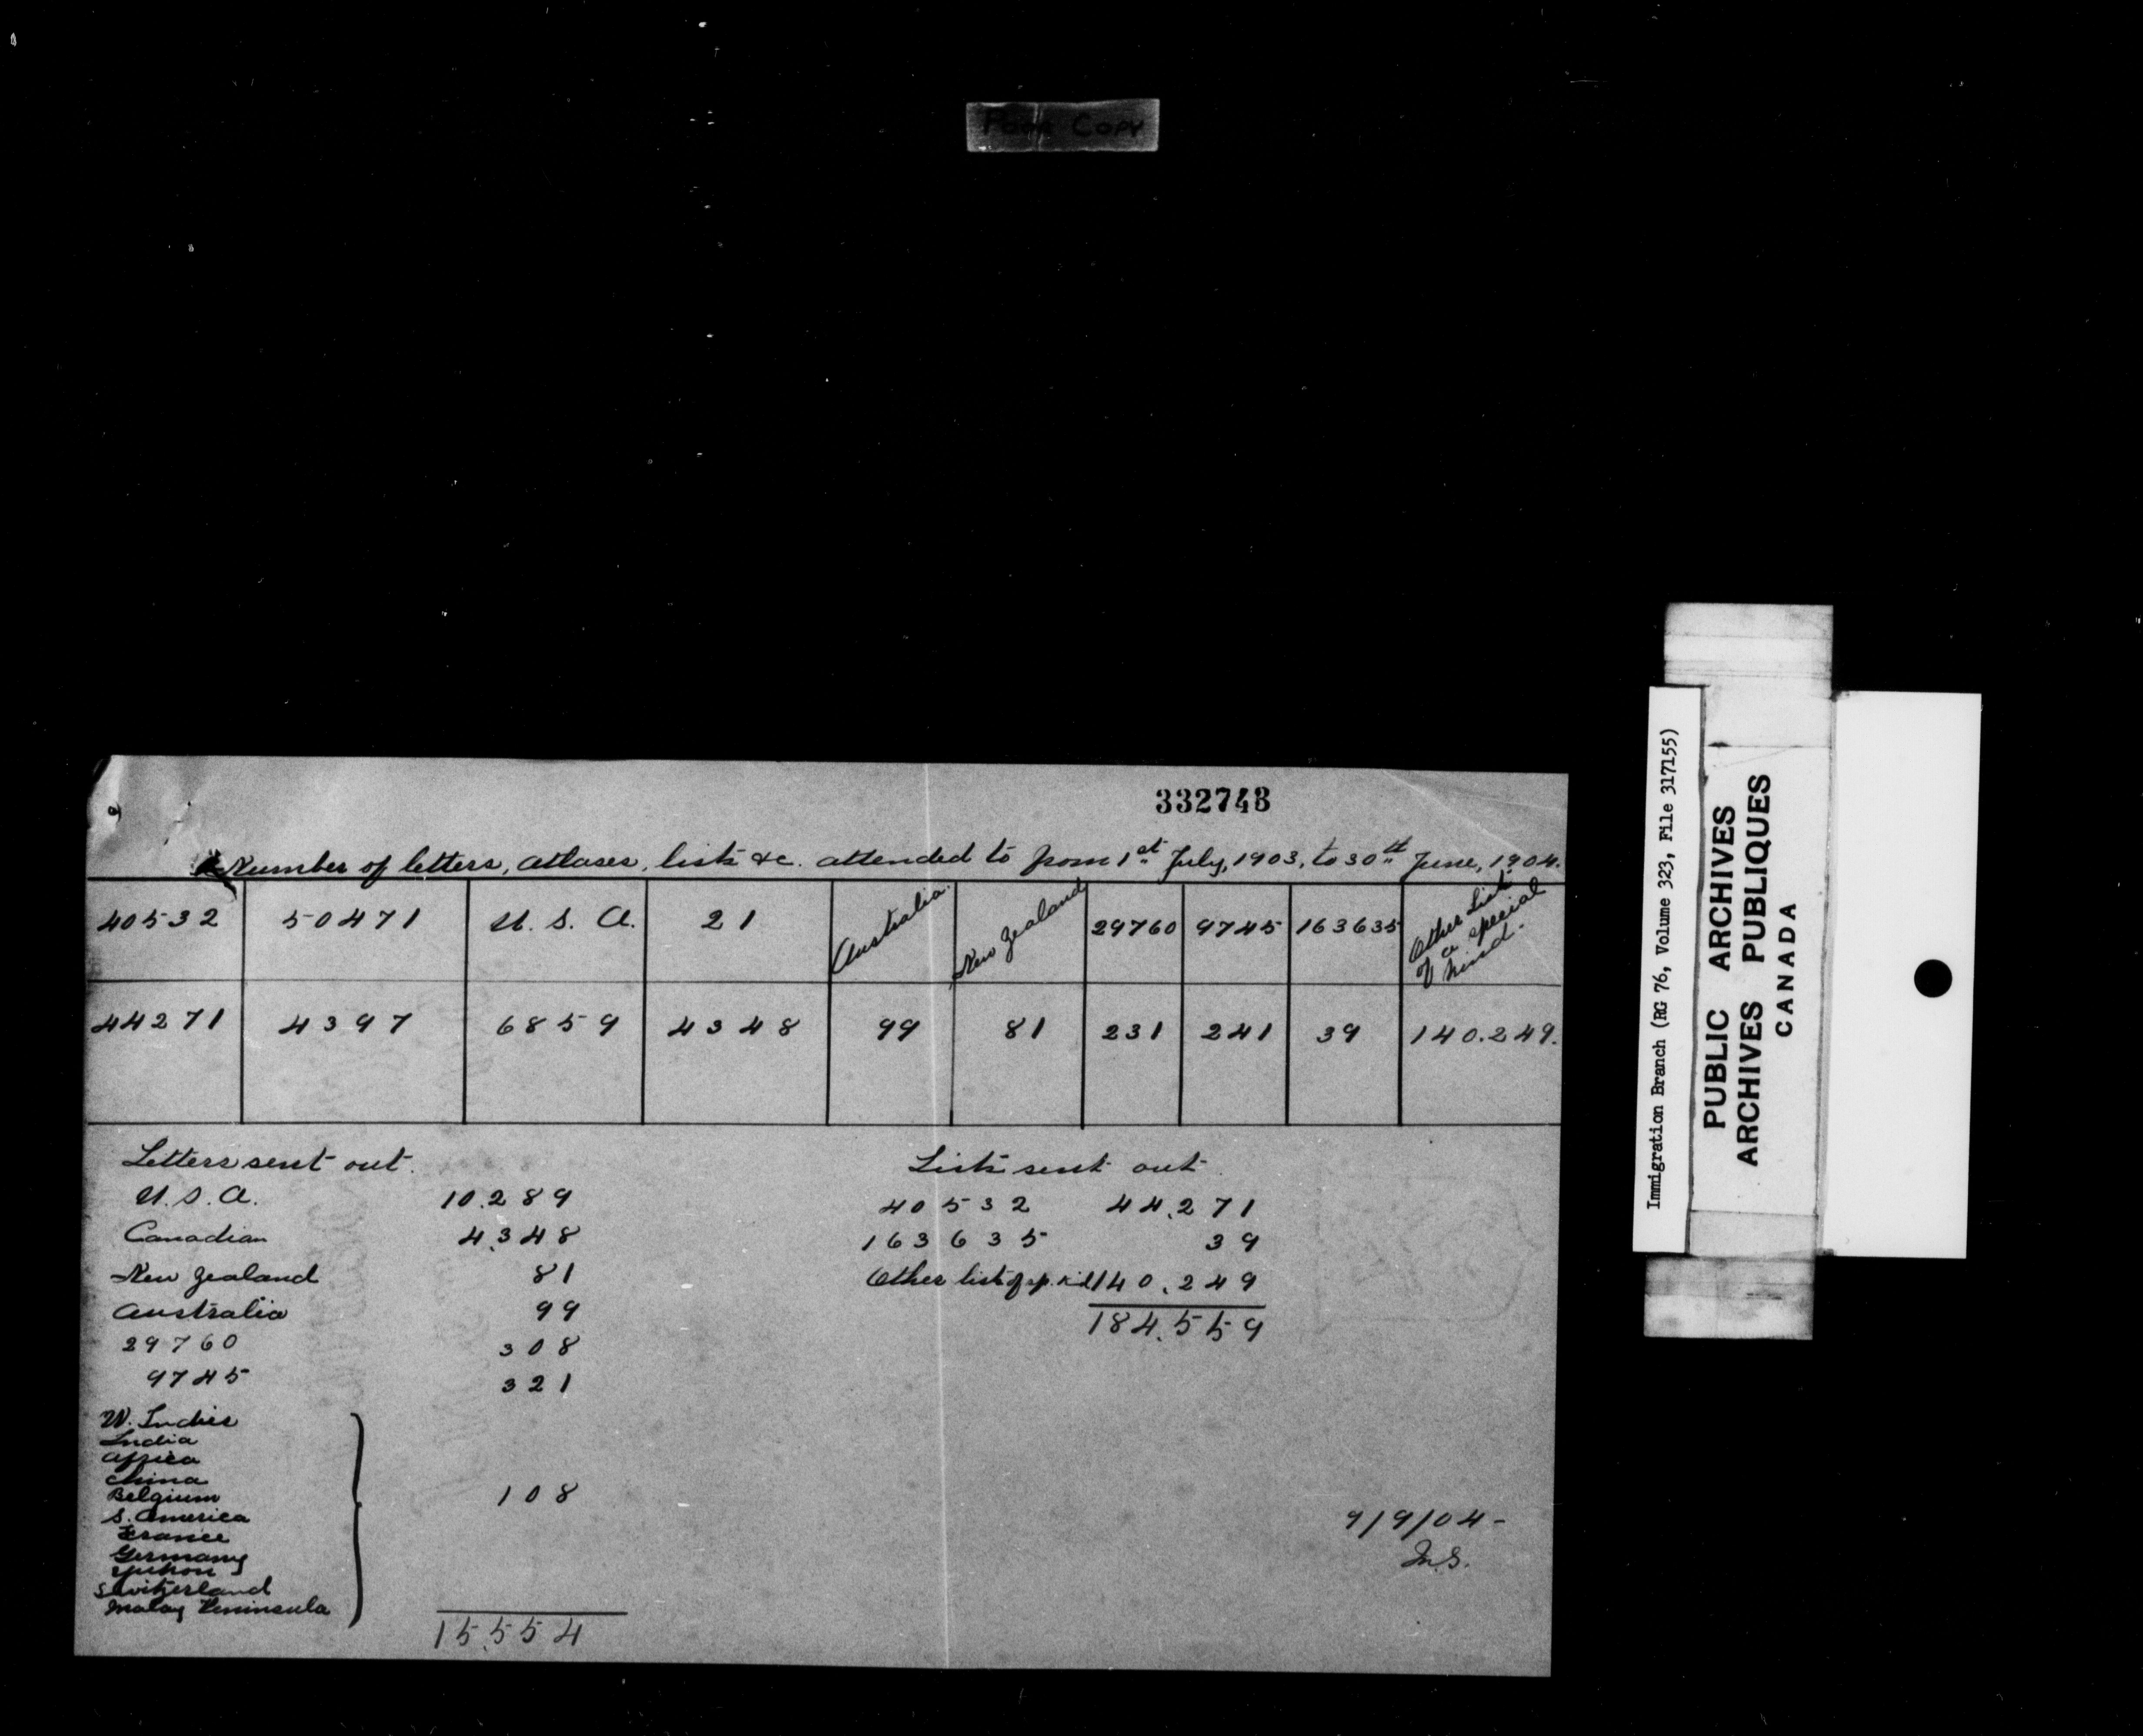 Poor Copy
332743
Number of letters, atlases, lists &c. attended to from 1st July, 1903, to 30th June, 1904.
40532 50471 U. S. A. 21 Australia. New Zealand 29760 9745 163635 Other Lists of a special kind.
44271 4397 6859 4348 99 81 231 241 39 140.249.
Letters sent out.
U.S.A. 10.289
Canadian 4.348
New Zealand 81
Australia 99
29760 308
9745 321
W. Indies
India
Africa
China
Belgium 108
S. America
France
Germany
Yukon
Switzerland
Malay Peninsula
15.554
Lists sent out.
40532 44.271
163635 39
Other list of sp. kid 140.249
184.559
9/9/04-
Immigration Branch (RG 76, Volume 323, File 317155)
PUBLIC ARCHIVES
ARCHIVES PUBLIQUES
CANADA